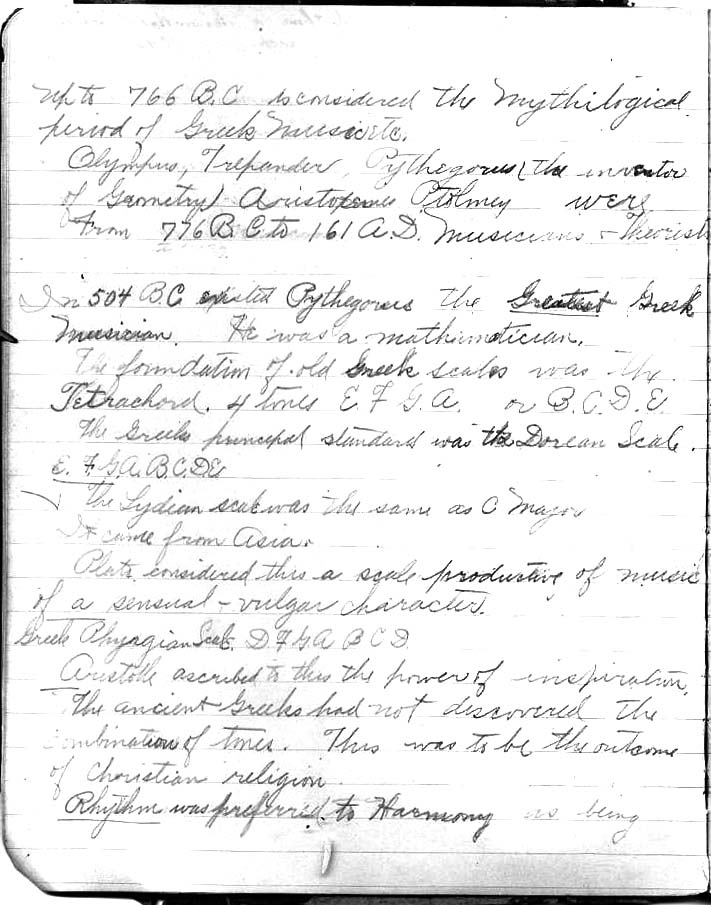 Up to 766 B.C is considered the Mythilogical
period of Greek Music etc.
Olympus, Trepander, Pythegorus (the inventor
of Geometry) Aristoxenes Ptolmey were
From 776 B.C. to 161 A.D. Musicians + Theorists
In 504 B.C existed Pythegorus the Greatest Greek
Musician. He was a mathematician.
The foundation of old Greek scales was the
Tetrachord. 4 tones E. F. G. A. or B. C. D. E.
The Greeks principal standard was the Dorean Scale.
E. F. G. A. B. C. D E
The Lydian scale was the same as C Major
It came from Asia.
Plato considered this a scale productive of music
of a sensual - vulgar character.
Greek Phyagian Scale. D. F G A B C D
Aristotle ascribed to this the power of inspiration,
The ancient Greeks had not discovered the
combination of tones. This was to be the outcome
of Christian religion.
Rhythm was preferred to Harmony as being